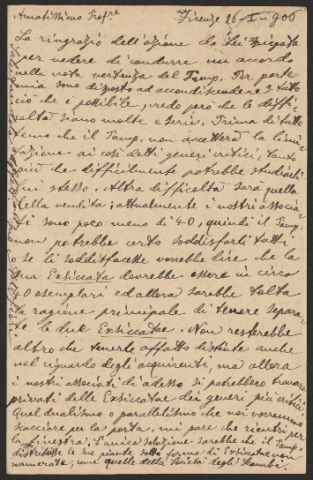 Amatissimo Prof.re Firenze 16-I-906
La ringrazio dell'azione da Lei spiegata
per vedere di condurre un accordo
nella nota vertenza del Tamp. Per parte
mia sono disposto ad accondiscendere a tutto
ciò che è possibile, credo però che le diffi-
coltà siano molte e serie. Prima di tutto
temo che il Tamp. non accetterà la limi-
tazione ai così detti generi critici, tanto
più che difficilmente potrebbe studiarli
lui stesso. Altra difficoltà sarà quella
della vendita; attualmente i nostri associa-
ti sono poco meno di 40, quindi il Tamp.
non potrebbe certo soddisfarli tutti
e se li soddisfacesse vorrebbe dire che la
sua Exsiccata dovrebbe essere in circa
40 esemplari ed allora sarebbe tolta
la ragione principale di tenere separa-
te le due Exsiccatae. Non resterebbe
altro che tenerle affatto distinte anche
nel riguardo degli acquirenti, ma allora
i nostri associati di adesso si potrebbero trovare
privati delle Exsiccatae dei generi più critici.
Quel dualismo o parallelismo che noi vorremmo
scacciare per la porta, mi pare che rientri per
la finestra. L'unica soluzione sarebbe che il Tamp.
distribuisse le sue piante sotto forma di Exsiccatae non
numerate, come quelle della Società degli Scambi.